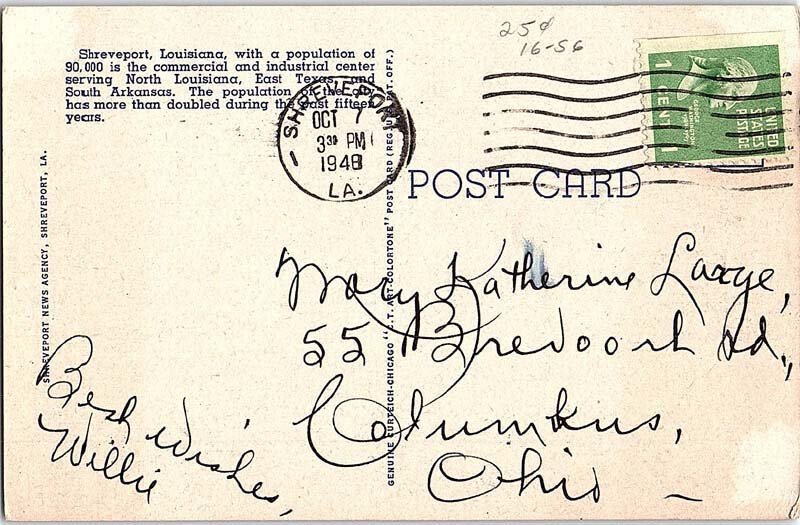 25¢
16-56
Shreveport, Louisiana, with a population of
90,000 is the commercial and industrial center
serving North Louisiana, East Texas, and
South Arkansas. The population of the city
has more than doubled during the past fifteen
years.
SHREVEPORT
OCT 7
3 30 PM
1948
LA.
1 CENT 1
UNITED
STATES
POSTAGE
POST CARD
SHREVEPORT NEWS AGENCY, SHREVEPORT, LA.
GENUINE CURTEICH-CHICAGO "C.T. ART-COLORTONE" POST CARD (REG. U.S. PAT. OFF.)
Mary Katherine Large,
55 Brevoort Rd.,
Columbus,
Ohio
Best Wishes,
Willie